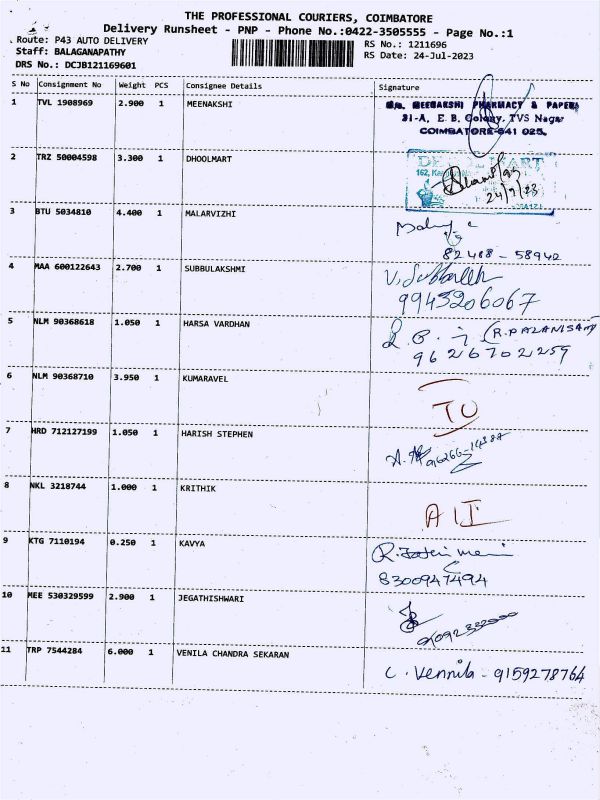 THE PROFESSIONAL COURIERS, COIMBATORE
Delivery Runsheet - PNP - Phone No.:0422-3505555 - Page No.:1
Route: P43 AUTO DELIVERY
RS No.: 1211696
Staff: BALAGANAPATHY
RS Date: 24-Jul-2023
DRS No.: DCJB121169601
S No Consignment No Weight PCS Consignee Details Signature
1 TVL 1908969 2.900 1 MEENAKSHI
MEENAKSHI PHARMACY & PAPERS
31-A, E. B. Colony, TVS Nagar
COIMBATORE-641 025.
2 TRZ 50004598 3.300 1 DHOOLMART
162,
24/7/23
3 BTU 5034810 4.400 1 MALARVIZHI
82488 - 58942
4 MAA 600122643 2.700 1 SUBBULAKSHMI
V. Subbulakh
9943206067
5 NLM 90368618 1.050 1 HARSA VARDHAN
(R.PALANISAMY
9626702259
6 NLM 90368710 3.950 1 KUMARAVEL
TU
7 HRD 712127199 1.050 1 HARISH STEPHEN
8 NKL 3218744 1.000 1 KRITHIK
9 KTG 7110194 0.250 1 KAVYA
8300947494
10 MEE 530329599 2.900 1 JEGATHISHWARI
11 TRP 7544284 6.000 1 VENILA CHANDRA SEKARAN
C. Vennila - 9159278764